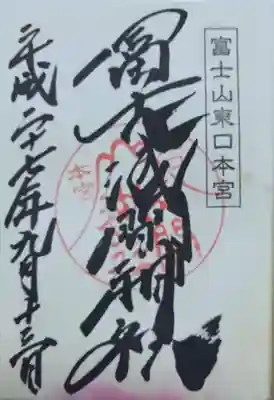 富士山東口本宮
冨士浅間神社
平成二十七年九月十三日